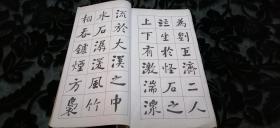 為劉巨濟二人
並坐於怪石之
上下有激湍潨
流於大溪之中
水石潺湲風竹
相吞鑪煙方裊